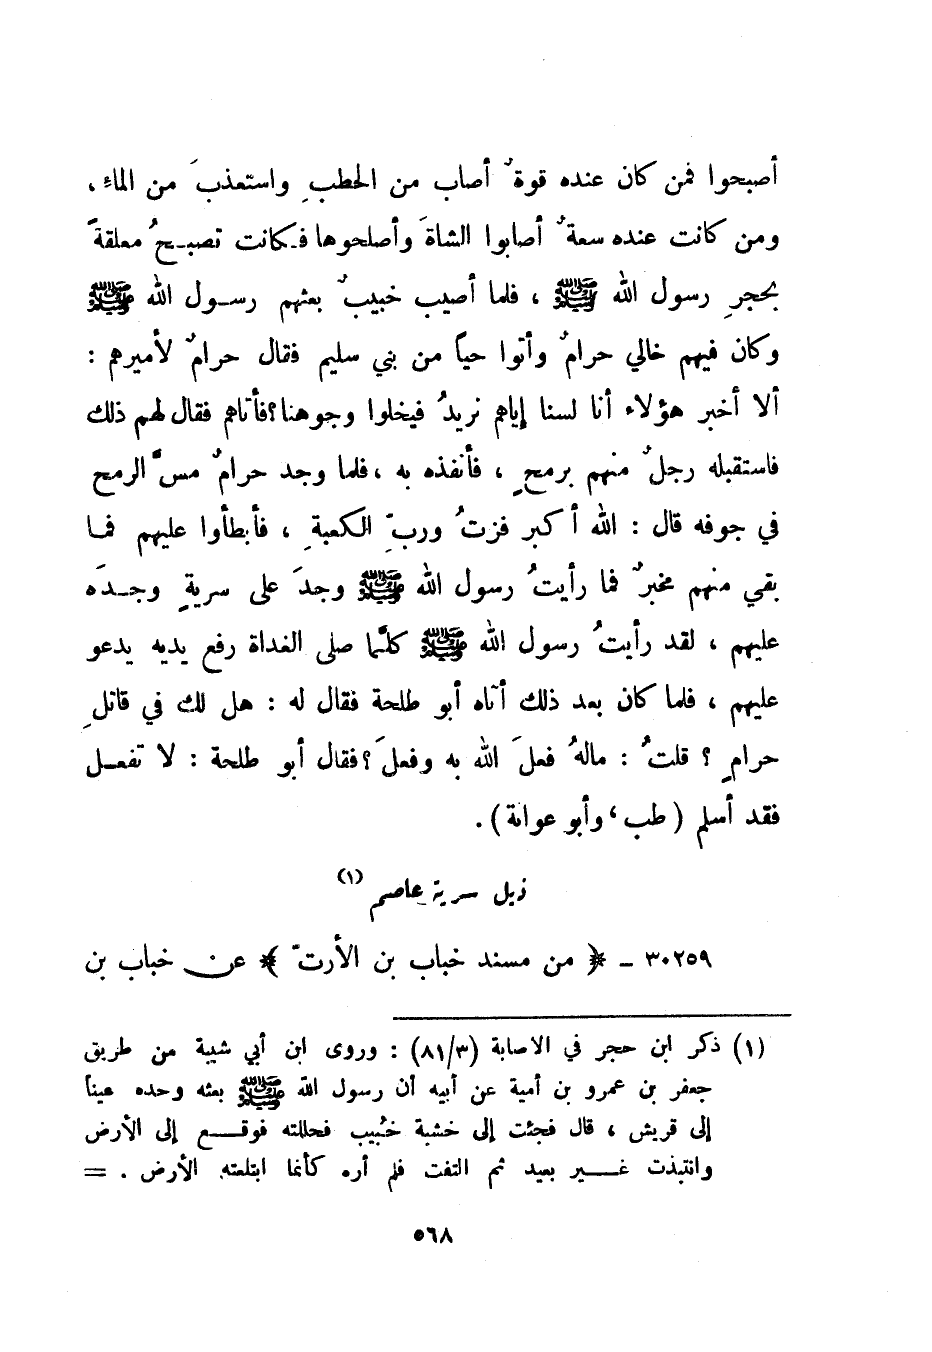 أصبحوا فمن كان عنده قوةٌ أصاب من الحطبِ واستعذبَ من الماءِ ،
ومن كانت عنده سعةٌ أصابوا الشاةَ وأصلحوها فكانت تصبحُ معلقةً
بحجرِ رسول الله ﷺ ، فلما أصيب خبيبٌ بعثهم رسول الله ﷺ
وكان فيهم خالي حرامٌ وأتوا حياً من بني سليم فقال حرامٌ لأميرهم :
ألا أخبر هؤلاء أنا لسنا إياهم نريدُ فيخلوا وجوهنا؟فأتاهم فقال لهم ذلك
فاستقبله رجلٌ منهم برمحٍ ، فأنفذه به ، فلما وجد حرامٌ مسَّ الرمح
في جوفه قال : الله أكبر فزتُ وربِّ الكعبةِ ، فأبطأوا عليهم فما
بقي منهم مخبرٌ فما رأيتُ رسول الله ﷺ وجدَ على سريةٍ وجدَه
عليهم ، لقد رأيتُ رسول الله ﷺ كلَّما صلى الغداة رفع يديه يدعو
عليهم ، فلما كان بعد ذلك أتاه أبو طلحة فقال له : هل لك في قاتلِ
حرامٍ ؟ قلتُ : مالهُ فعلَ الله به وفعلَ ؟فقال أبو طلحة : لا تفعل
فقد أسلم ( طب ، وأبو عوانة ) .
ذيل سرية عاصم (١)
٣٠٢٥٩ ـ ﴿ من مسند خباب بن الأرتّ ﴾ عن خباب بن
(١) ذكر ابن حجر في الاصابة (٨١/٣) : وروى ابن أبي شيبة من طريق
جعفر بن عمرو بن أمية عن أبيه أن رسول الله ﷺ بعثه وحده عيناً
إلى قريش ، قال فجئت إلى خشبة خُبيب فحللته فوقع إلى الأرض
وانتبذت غير بعيد ثم التفت فلم أره كأنما ابتلعته الأرض . =
٥٦٨